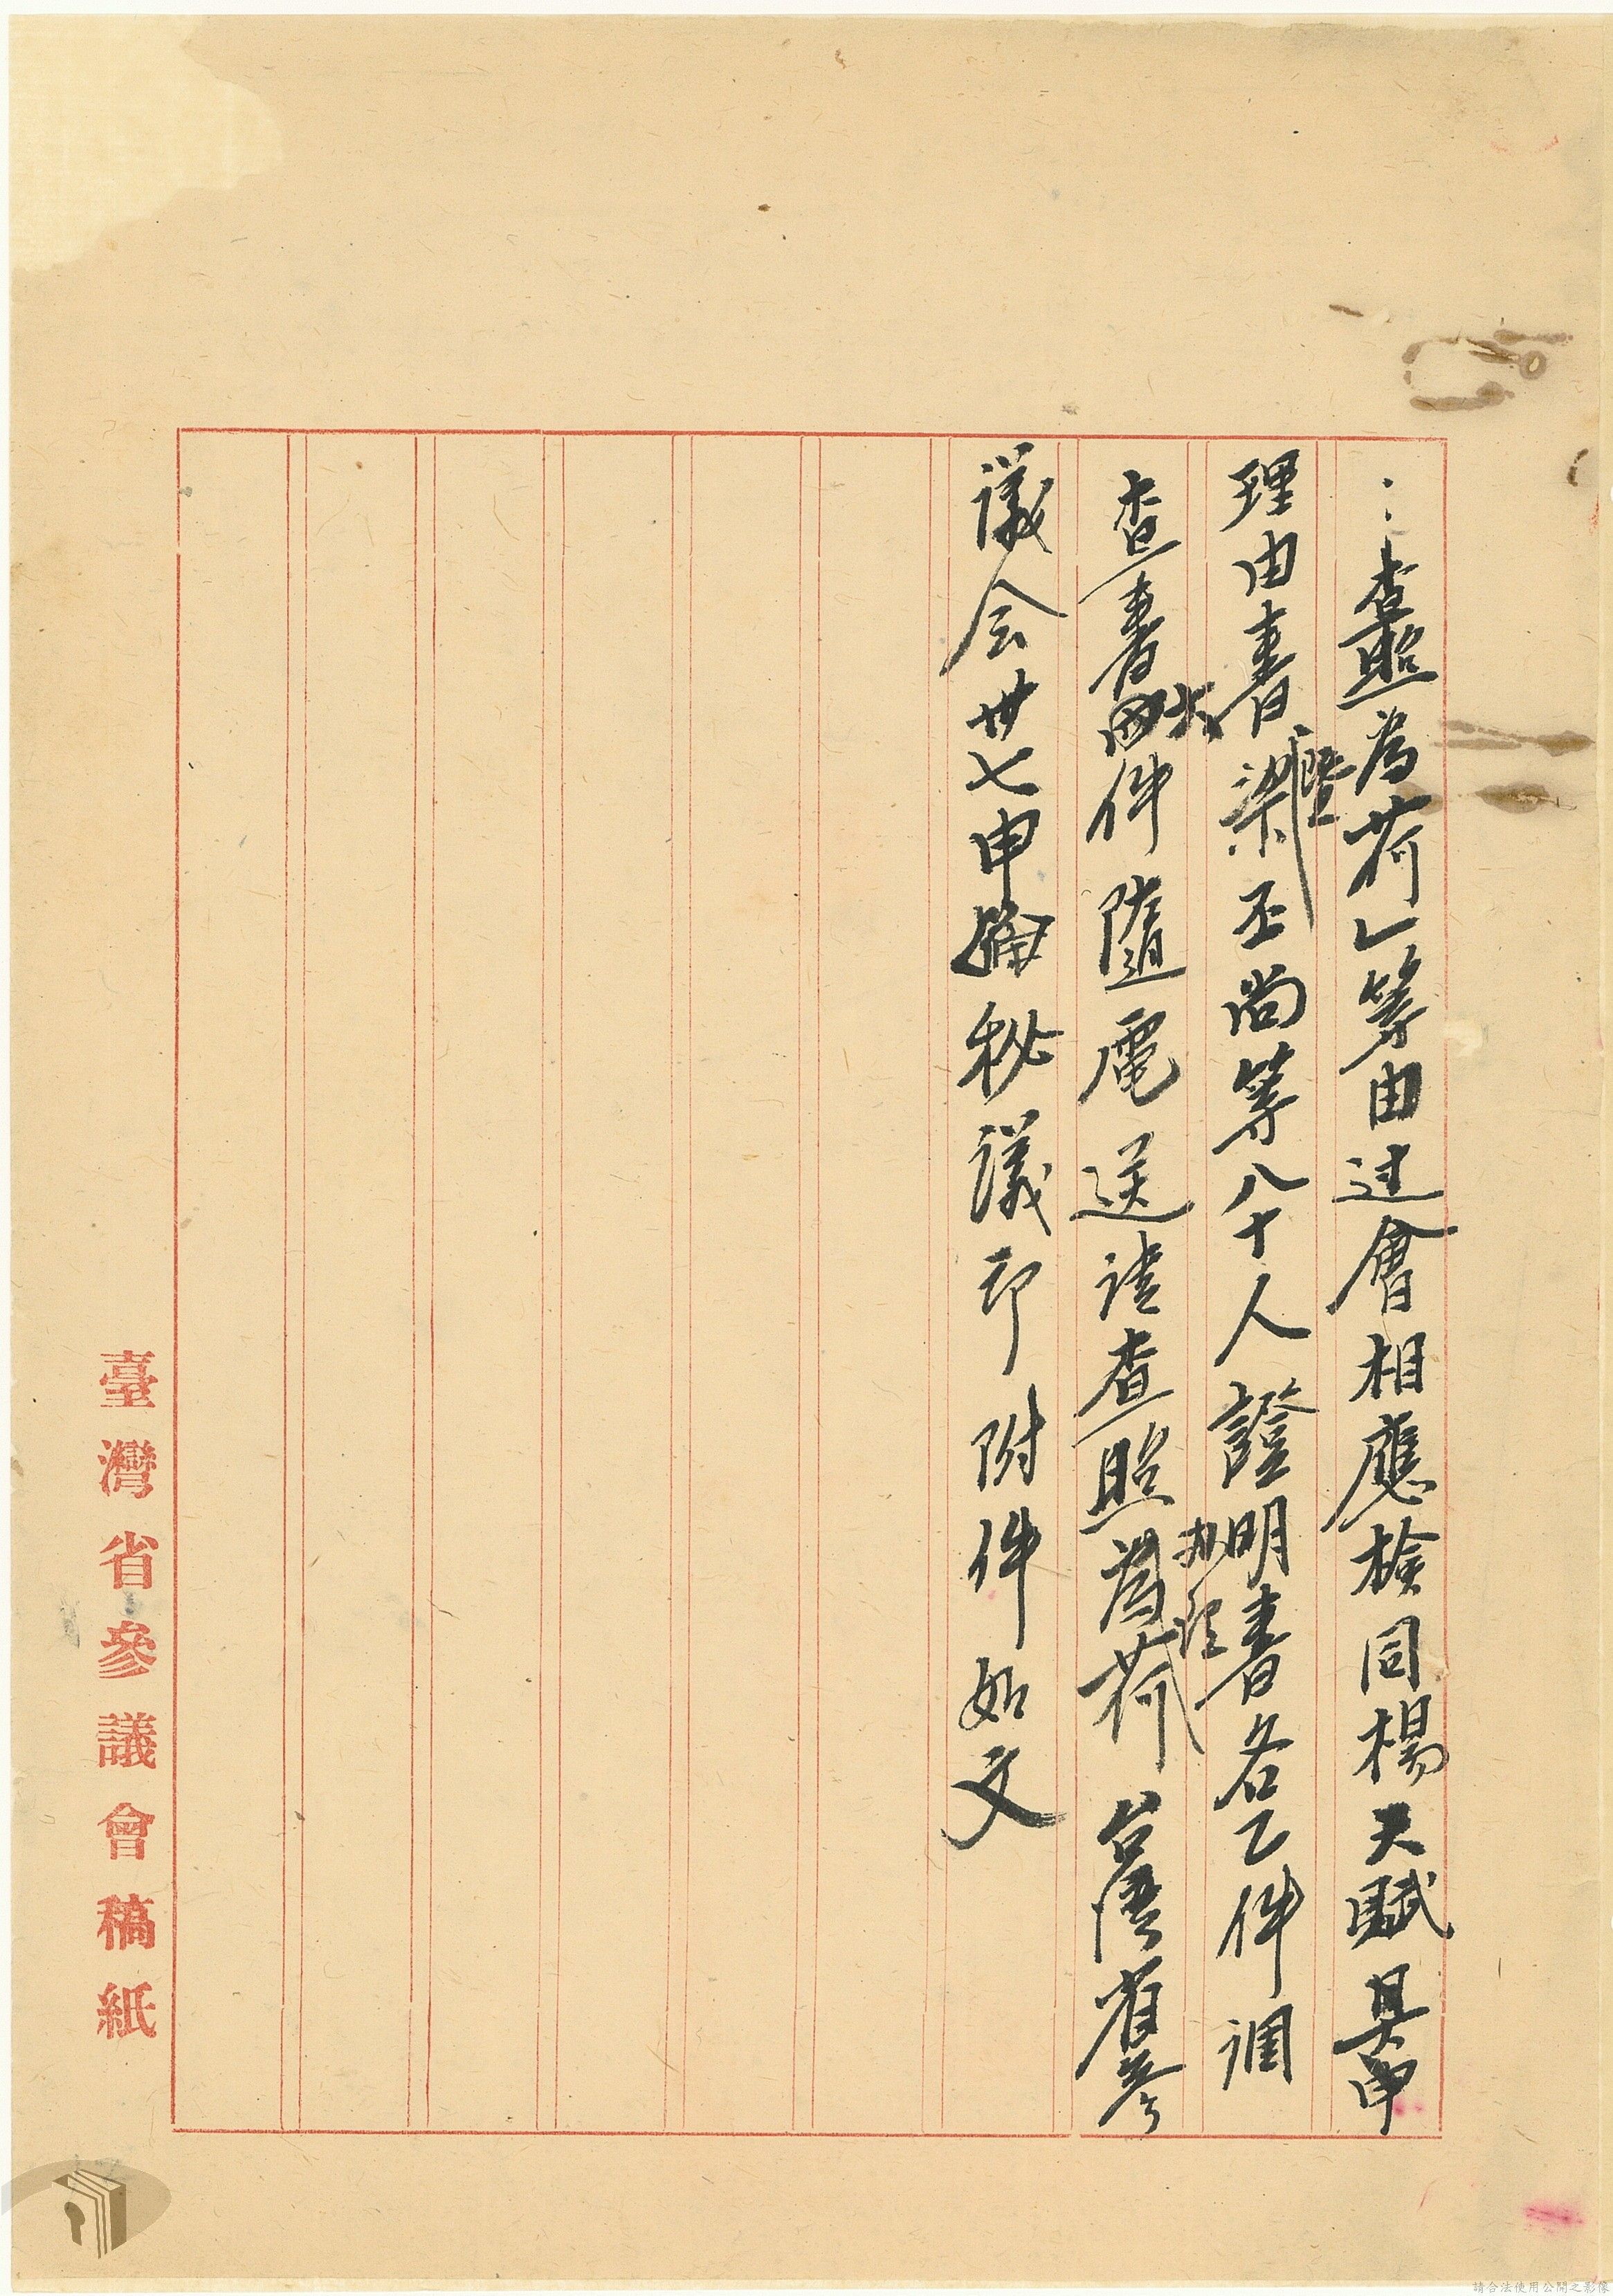 ：：查照為荷」等由过會相應檢同楊天賦具申
理由書、暨梁丕尚等八十人證明書各乙件調
查書件隨電送請查照為荷台灣省參
辦理
議会卅七申秘議印附件如文
臺灣省參議會稿紙
請合法使用公開之影像